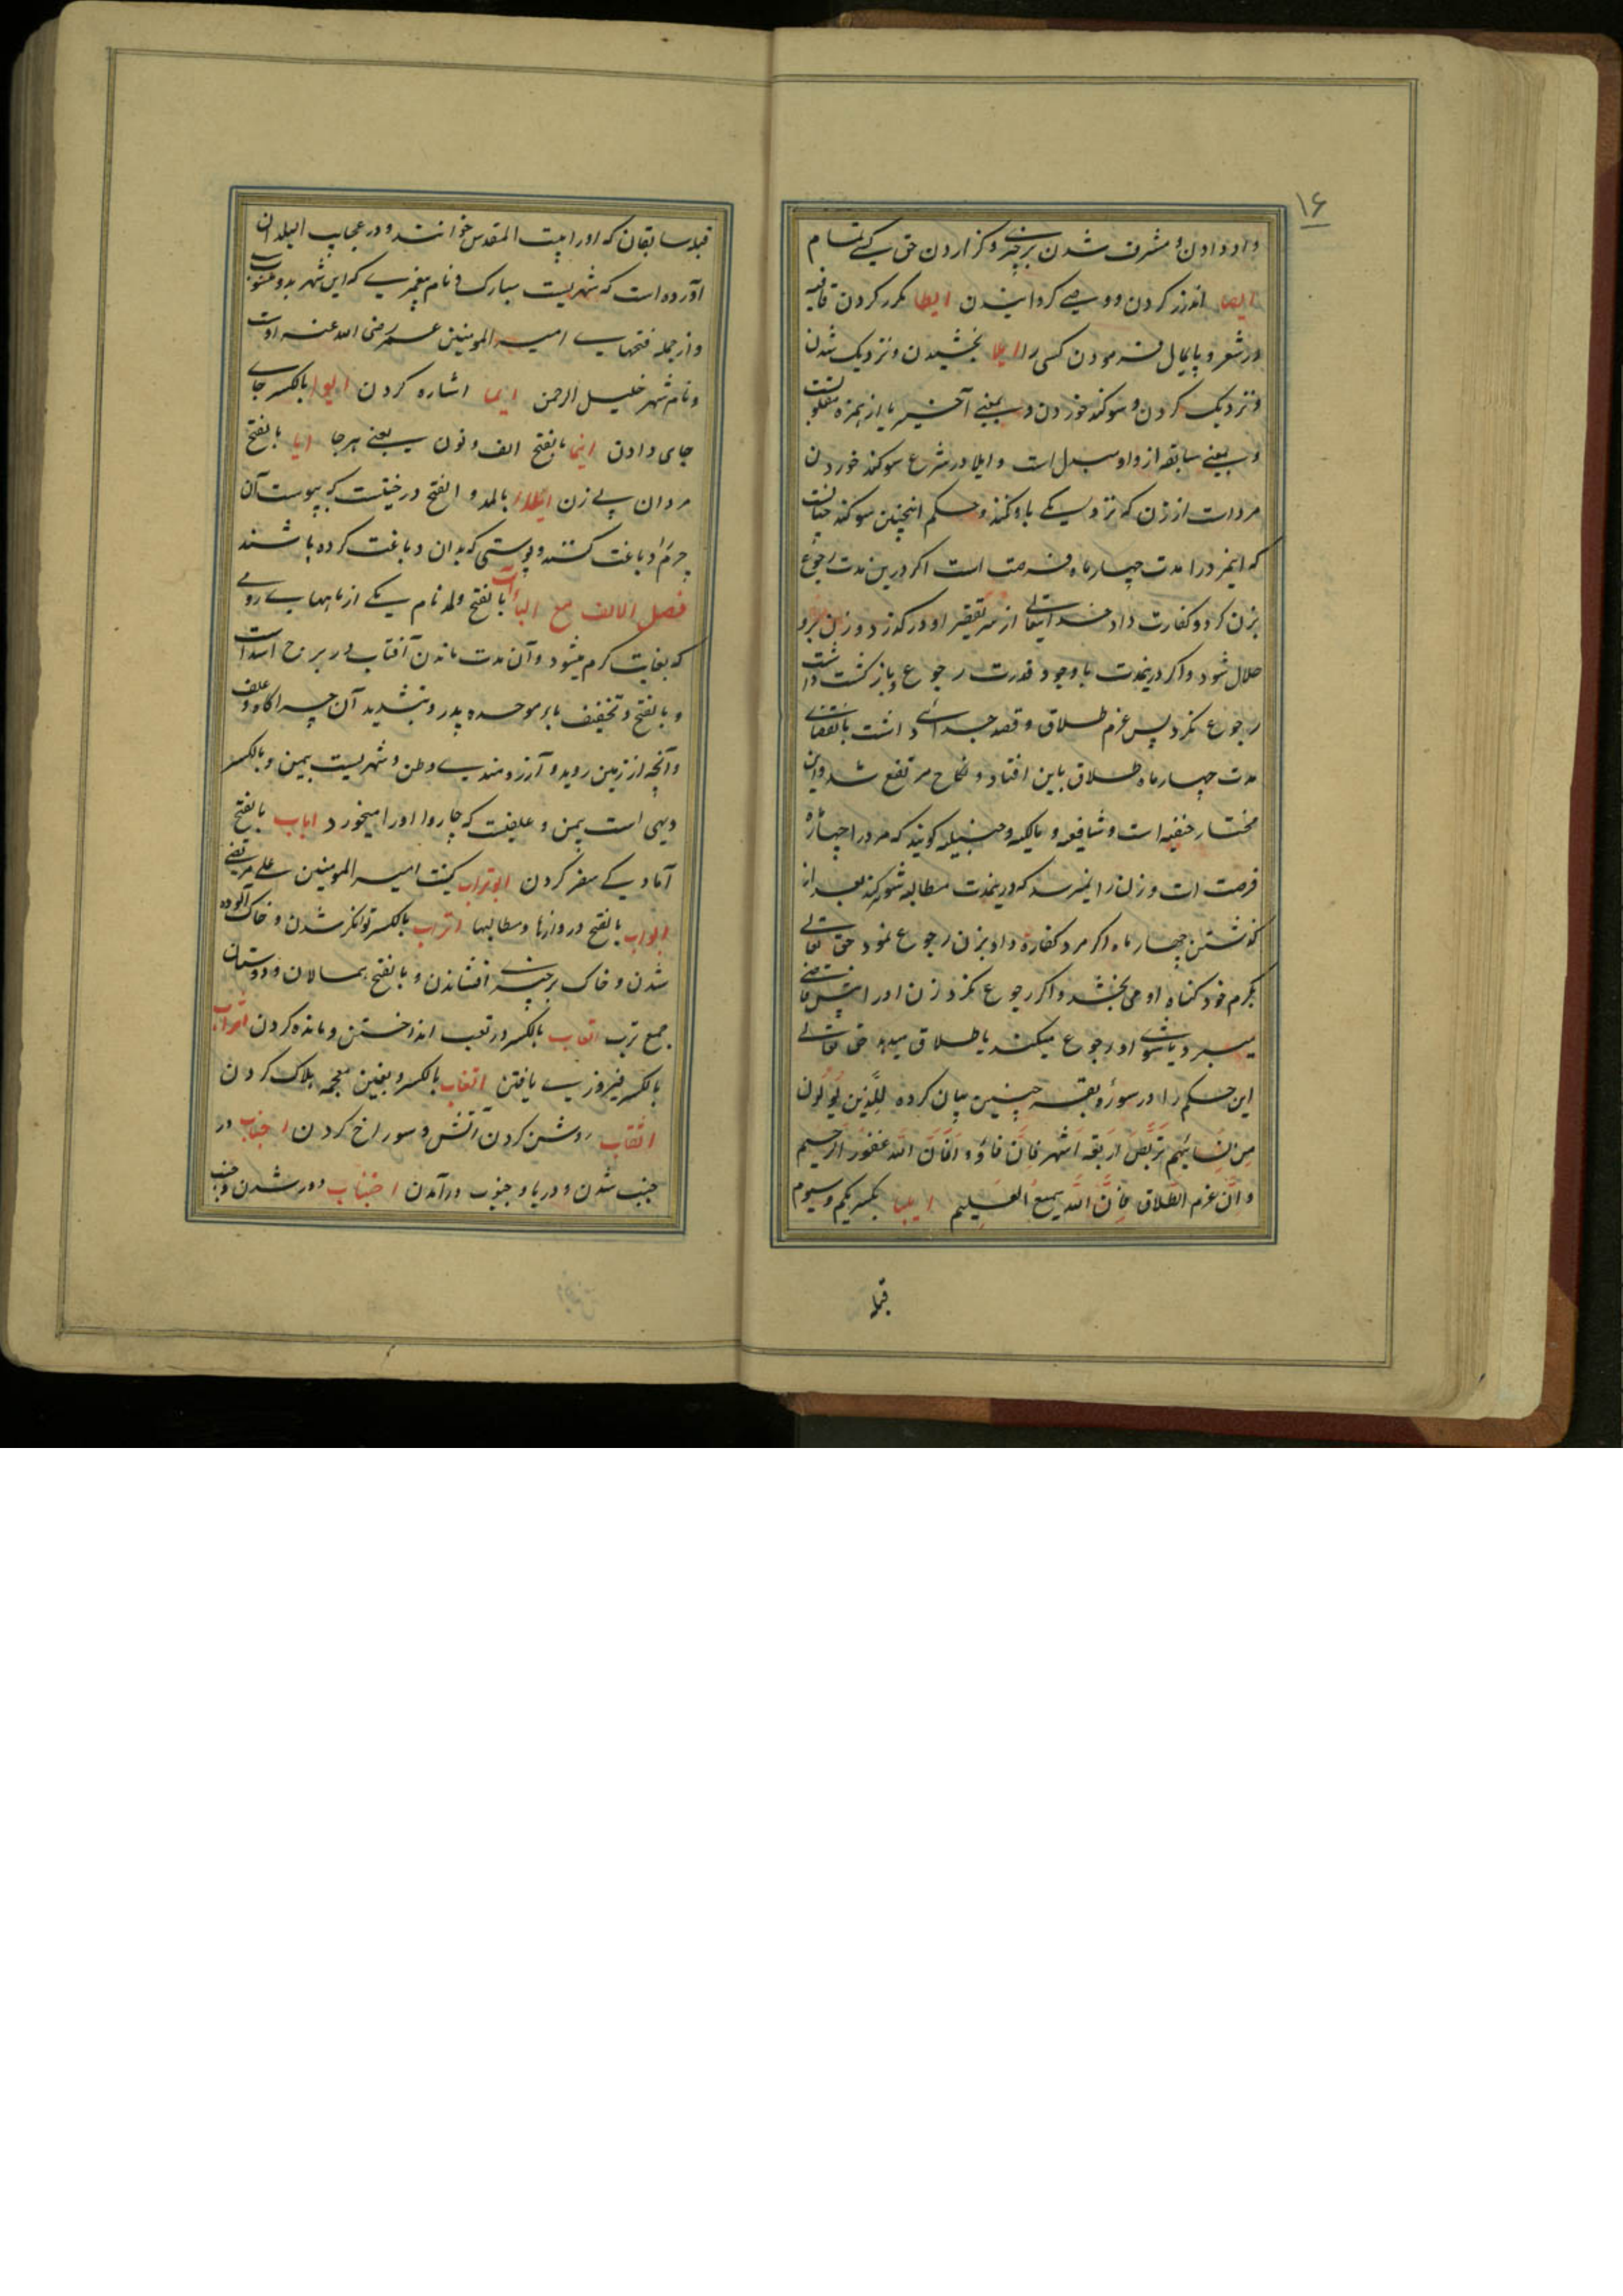 ۱۶
داد دادن و مشرف شدن بر چیزی و گزاردن حق یکی تمام
ایصا اندرز کردن و وصی گردانیدن ایطا مکرر کردن قافیه
در شعر و پایمال فرمودن کسی را ایلا بخشیدن و نزدیک شدن
و نزدیک کردن و سوگند خوردن و بمعنی آخر یا از همزه مقلوبست
و بمعنی سابقه از واو مبدل است و ایلا در شرع سوگند خوردن
مردات از زن که نزدیکی باو نکند و حکم اینچنین سوگند چنانست
که اینمرد را مدت چهار ماه فرصت است اگر درین مدت رجوع
بزن کرد و کفارت داد خدایتعالی از سر تقصیر او درگذرد و زن برو
حلال شود و اگر درینمدت با وجود قدرت رجوع و بازگشت داشت
رجوع نکرد پس عزم طلاق و قصد جدائی داشت بانقضای
مدت چهار ماه طلاق باین افتاد و نکاح مرتفع شد و این
مختار حنفیه است و شافعیه و مالکیه و حنبلیه گویند که مرد را چهار ماه
فرصت است و زن را نمیرسد که درینمدت مطالبه شوی کند بعد از
گذشتن چهار ماه اگر مرد کفارة داد بزن رجوع نمود حق تعالی
بکرم خود گناه او می بخشد و اگر رجوع نکرد زن او را پیش قاضی
میبرد یا شوی او رجوع میکند یا طلاق میدهد حق تعالی
این حکم را در سورۀ بقره چنین بیان کرده لِلَّذین یُولُون
مِن نِسائِهِم تَرَبُّصُ اَربَعَة اَشهُر فَاِن فاؤُو فَاِنَّ الله غَفُور الرحیم
وَ اِن عَزم الطَّلاق فَاِنَّ الله سَمیعُ العَلیم ایلیا بکسر یکم و سیوم
قبله
قبله سابقان که او را بیت المقدس خوانند و در عجایب البلدان
آورده است که شهریست مبارک و نام پیغمبری که این شهر بدو منسوبست
و از جمله فتحهای امیر المومنین عمر رضی الله عنه اوست
و نام شهر خلیل الرحمن ایما اشاره کردن ایوا بالکسر جای
جای دادن اینما بالفتح الف و نون یعنی هر جا ایا بالفتح
مردان بی زن بالمد و الفتح درختیست که بپوست آن
چرم را دباغت کنند و پوستی که بدان دباغت کرده باشند
فصل الالف مع الباء آب بالفتح و المد نام یکی از ماههای رومی
که بغایت گرم میشود و آن مدت ماندن آفتاب در برج اسد است
و بالفتح و تخفیف با موحده پدر و بتشدید آن چراگاه و علف
و آنچه از زمین روید و آرزومندی وطن و شهریست بیمن و بالکسر
دیهی است بیمن و علفیست که چاروا او را میخورد اباب بالفتح
آمادگی سفر کردن ابوتراب کنیت امیر المومنین علی مرتضی
ابواب بالفتح دروازها و مطالبها اتراب بالکسر توانگر شدن و خاک آلوده
شدن و خاک بر چیزی افشاندن و بالفتح همسالان و دوستان
جمع ترب اتعاب بالکسر در تعب انداختن و مانده کردن
بالکسر فیروزی یافتن اتغاب بالکسر و بغین معجمه هلاک کردن
اثقاب روشن کردن آتش و سوراخ کردن اجناب در
جنب شدن و در باد جنوب در آمدن اجتناب دور شدن و جنب